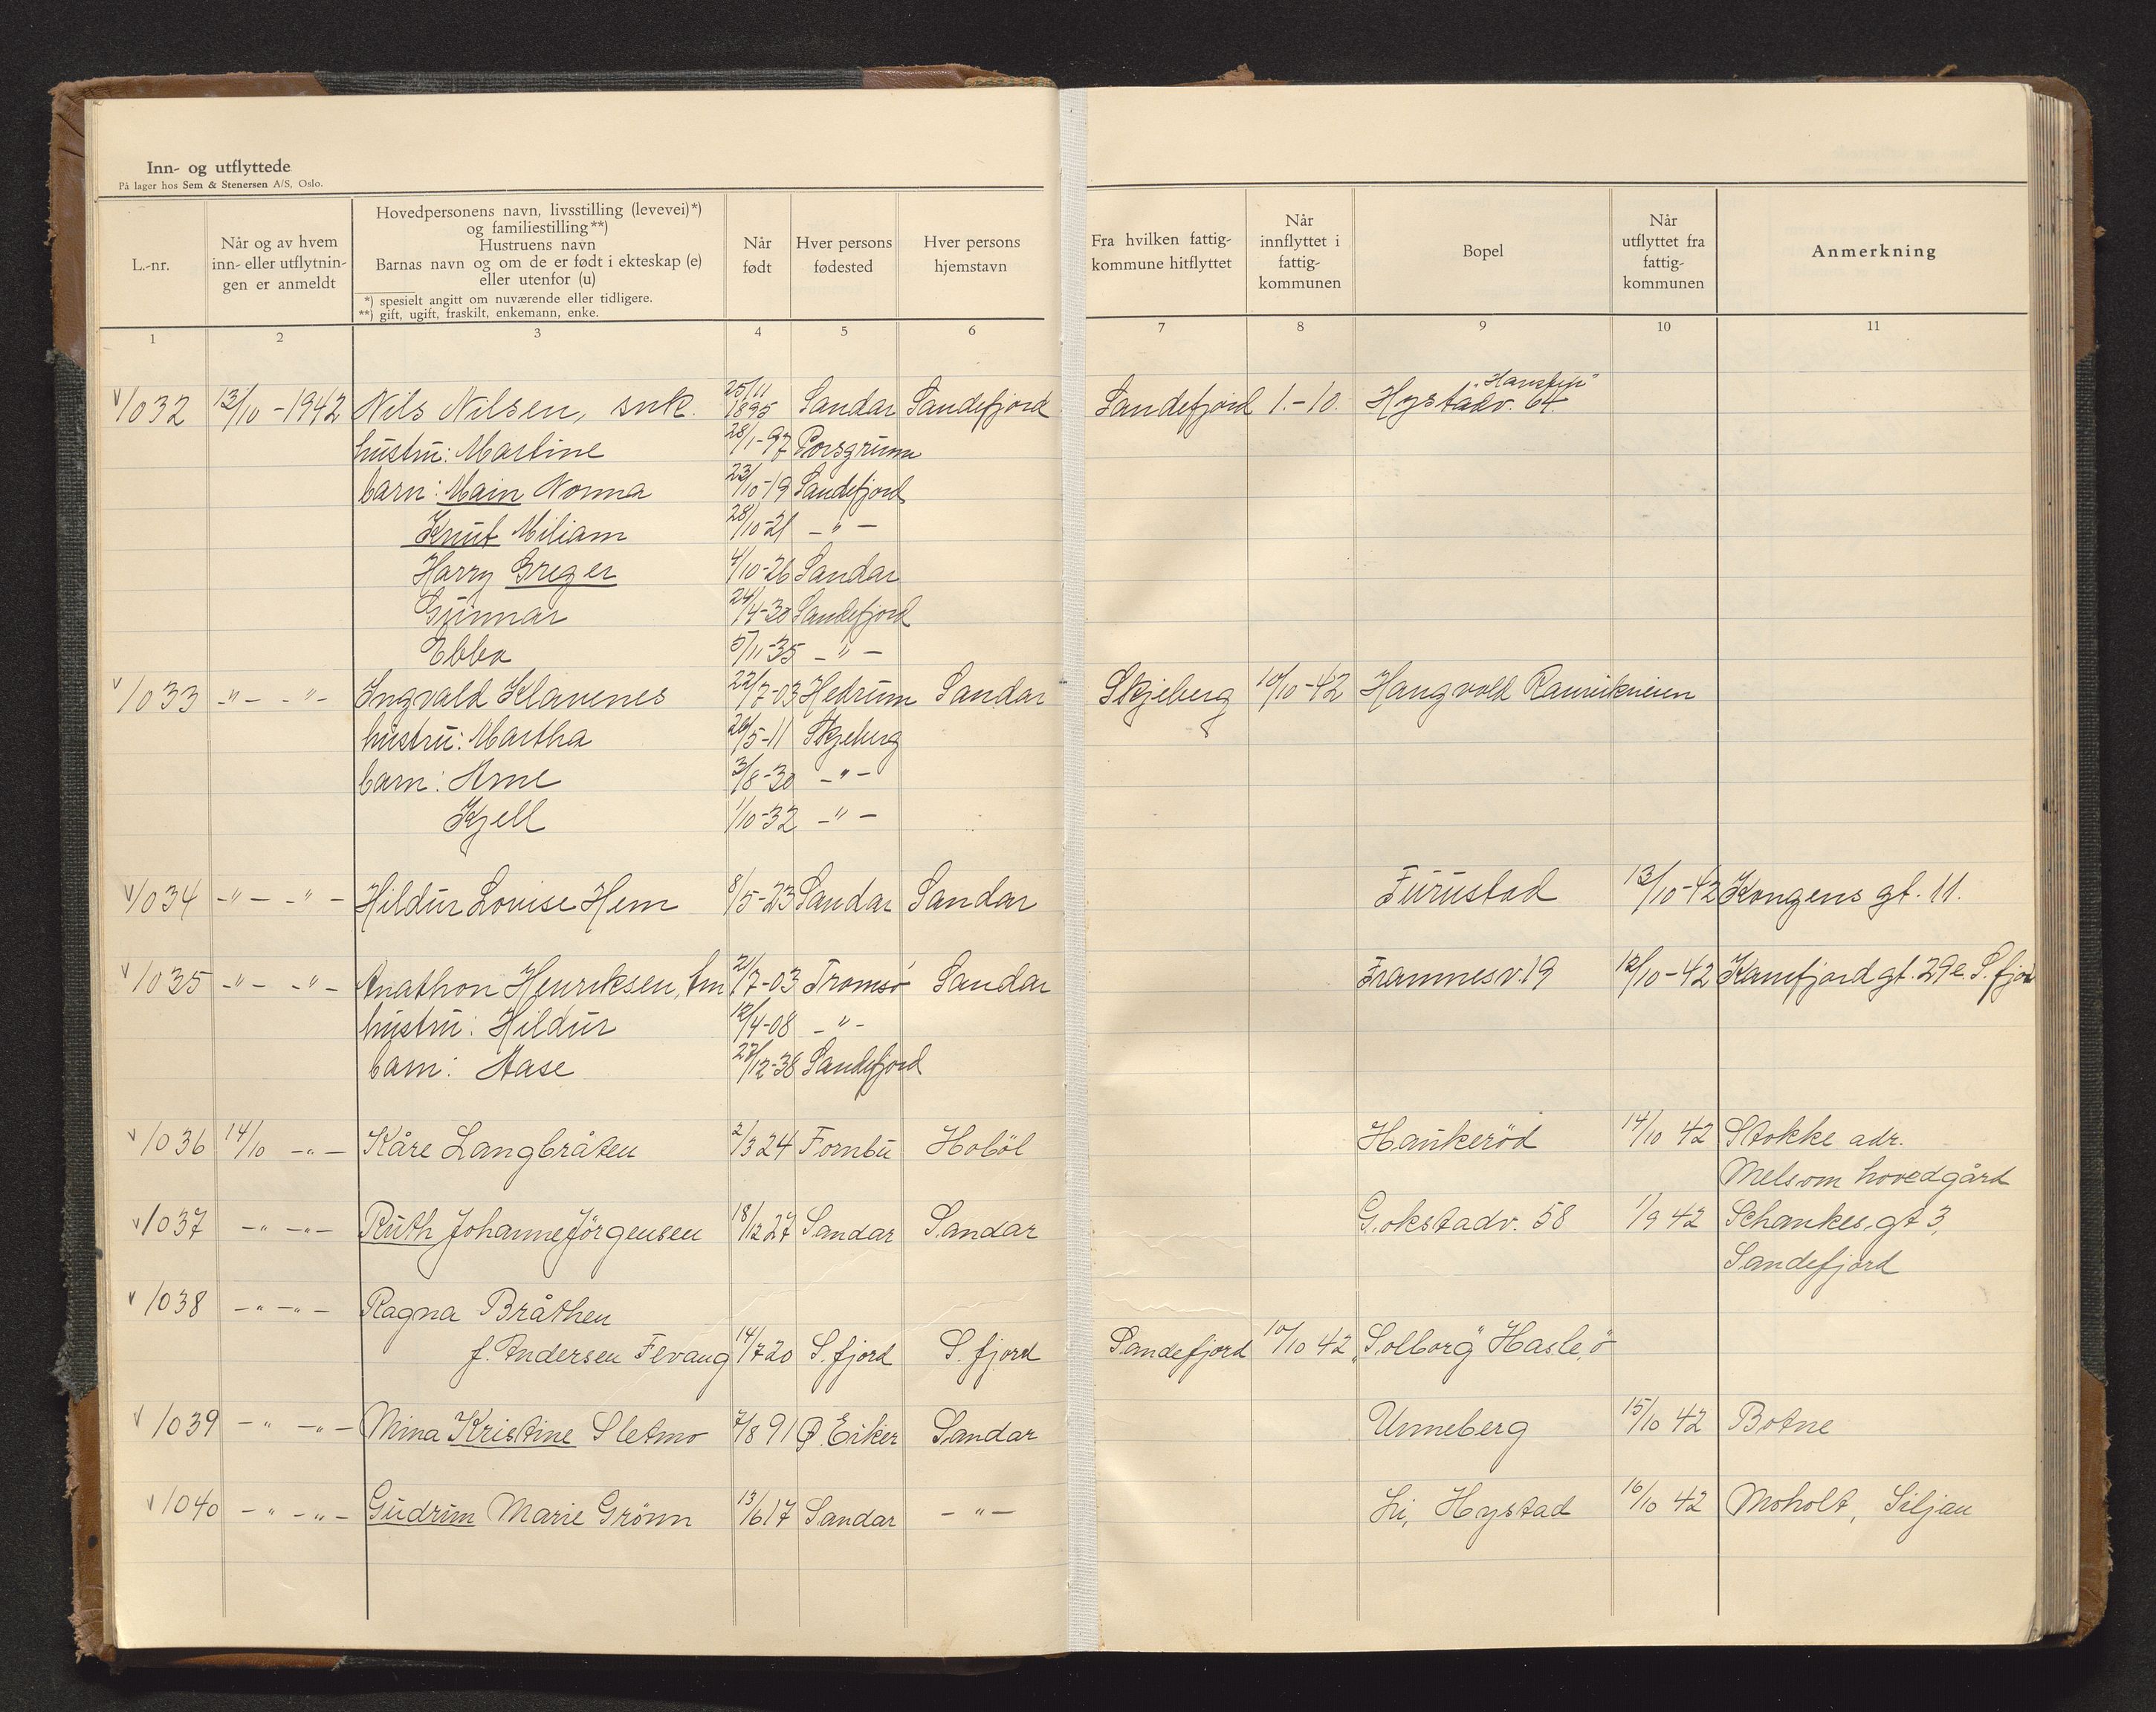 Inn- og utflyttede
På lager hos Sem & Stenersen A/S, Oslo.
L.-nr.
Når og av hvem
inn- eller utflytnin-
gen er anmeldt
Hovedpersonens navn, livsstilling (levevei)*)
og familiestilling**)
Hustruens navn
Barnas navn og om de er født i ekteskap (e)
eller utenfor (u)
*) spesielt angitt om nuværende eller tidligere.
**) gift, ugift, fraskilt, enkemann, enke.
Når
født
Hver persons
fødested
Hver persons
hjemstavn
Fra hvilken fattig-
kommune hitflyttet
Når
innflyttet i
fattig-
kommunen
Bopel
Når
utflyttet fra
fattig-
kommunen
Anmerkning
1 2 3 4 5 6 7 8 9 10 11
"Hanstin"
V 1032 13/10-1942 Nils Nilsen, snk. 25/11 1895 Sandar Sandefjord Sandefjord 1.-10. Hystadv. 64
hustru: Martine 28/1-97 Porsgrunn
barn: Main Nonna 23/10-19 Sandefjord
Knut Miliam 28/10-21 -"-
Harry Greger 4/10-26 Sandar
Gunnar 24/4-30 Sandefjord
Ebba 5/11-35 -"-
V 1033 -"- -"- Ingvald Klavenes 22/7-03 Hedrum Sandar Skjeberg 10/10-42 Haugvoll Ranvikveien
hustru: Martha 26/5-11 Skjeberg
barn: Arne 3/8-30 -"-
Kjell 1/10-32 -"-
V 1034 -"- -"- Hildur Lovise Hem 8/5-23 Sandar Sandar Furustad 13/10-42 Kongens gt. 11.
V 1035 -"- -"- Anathon Henriksen, 21/7-03 Tromsø Sandar Framnesv. 19 12/10-42 Kamfjordgt. 29e. S.fjor
hustru: Hildur 12/4-08 -"-
barn: Aase 27/12-38 Sandefjord
V 1036 14/10 -"- Kåre Langbråten 2/3 24 Fornbu Hoböl Haukeröd 14/10 42 Stokke adr.
Melsom hovedgård
V 1037 -"- -"- Ruth Johanne Jörgensen 18/12 27 Sandar Sandar Gokstadv. 58 1/9 42 Schankes gt 3,
Sandefjord
V 1038 -"- -"- Ragna Bråthen
f. Andersen Fevang 14/7 20 S.fjord S.fjord Sandefjord 10/10 42 "Solborg" Hasle,ö
V 1039 -"- -"- Mina Kristine Sletmo 7/8 91 Ø. Eiker Sandar Unneberg 15/10 42 Botne
V 1040 -"- -"- Gudrun Marie Grönn 13/6 17 Sandar -"- Li, Hystad 16/10 42 Moholt, Siljan